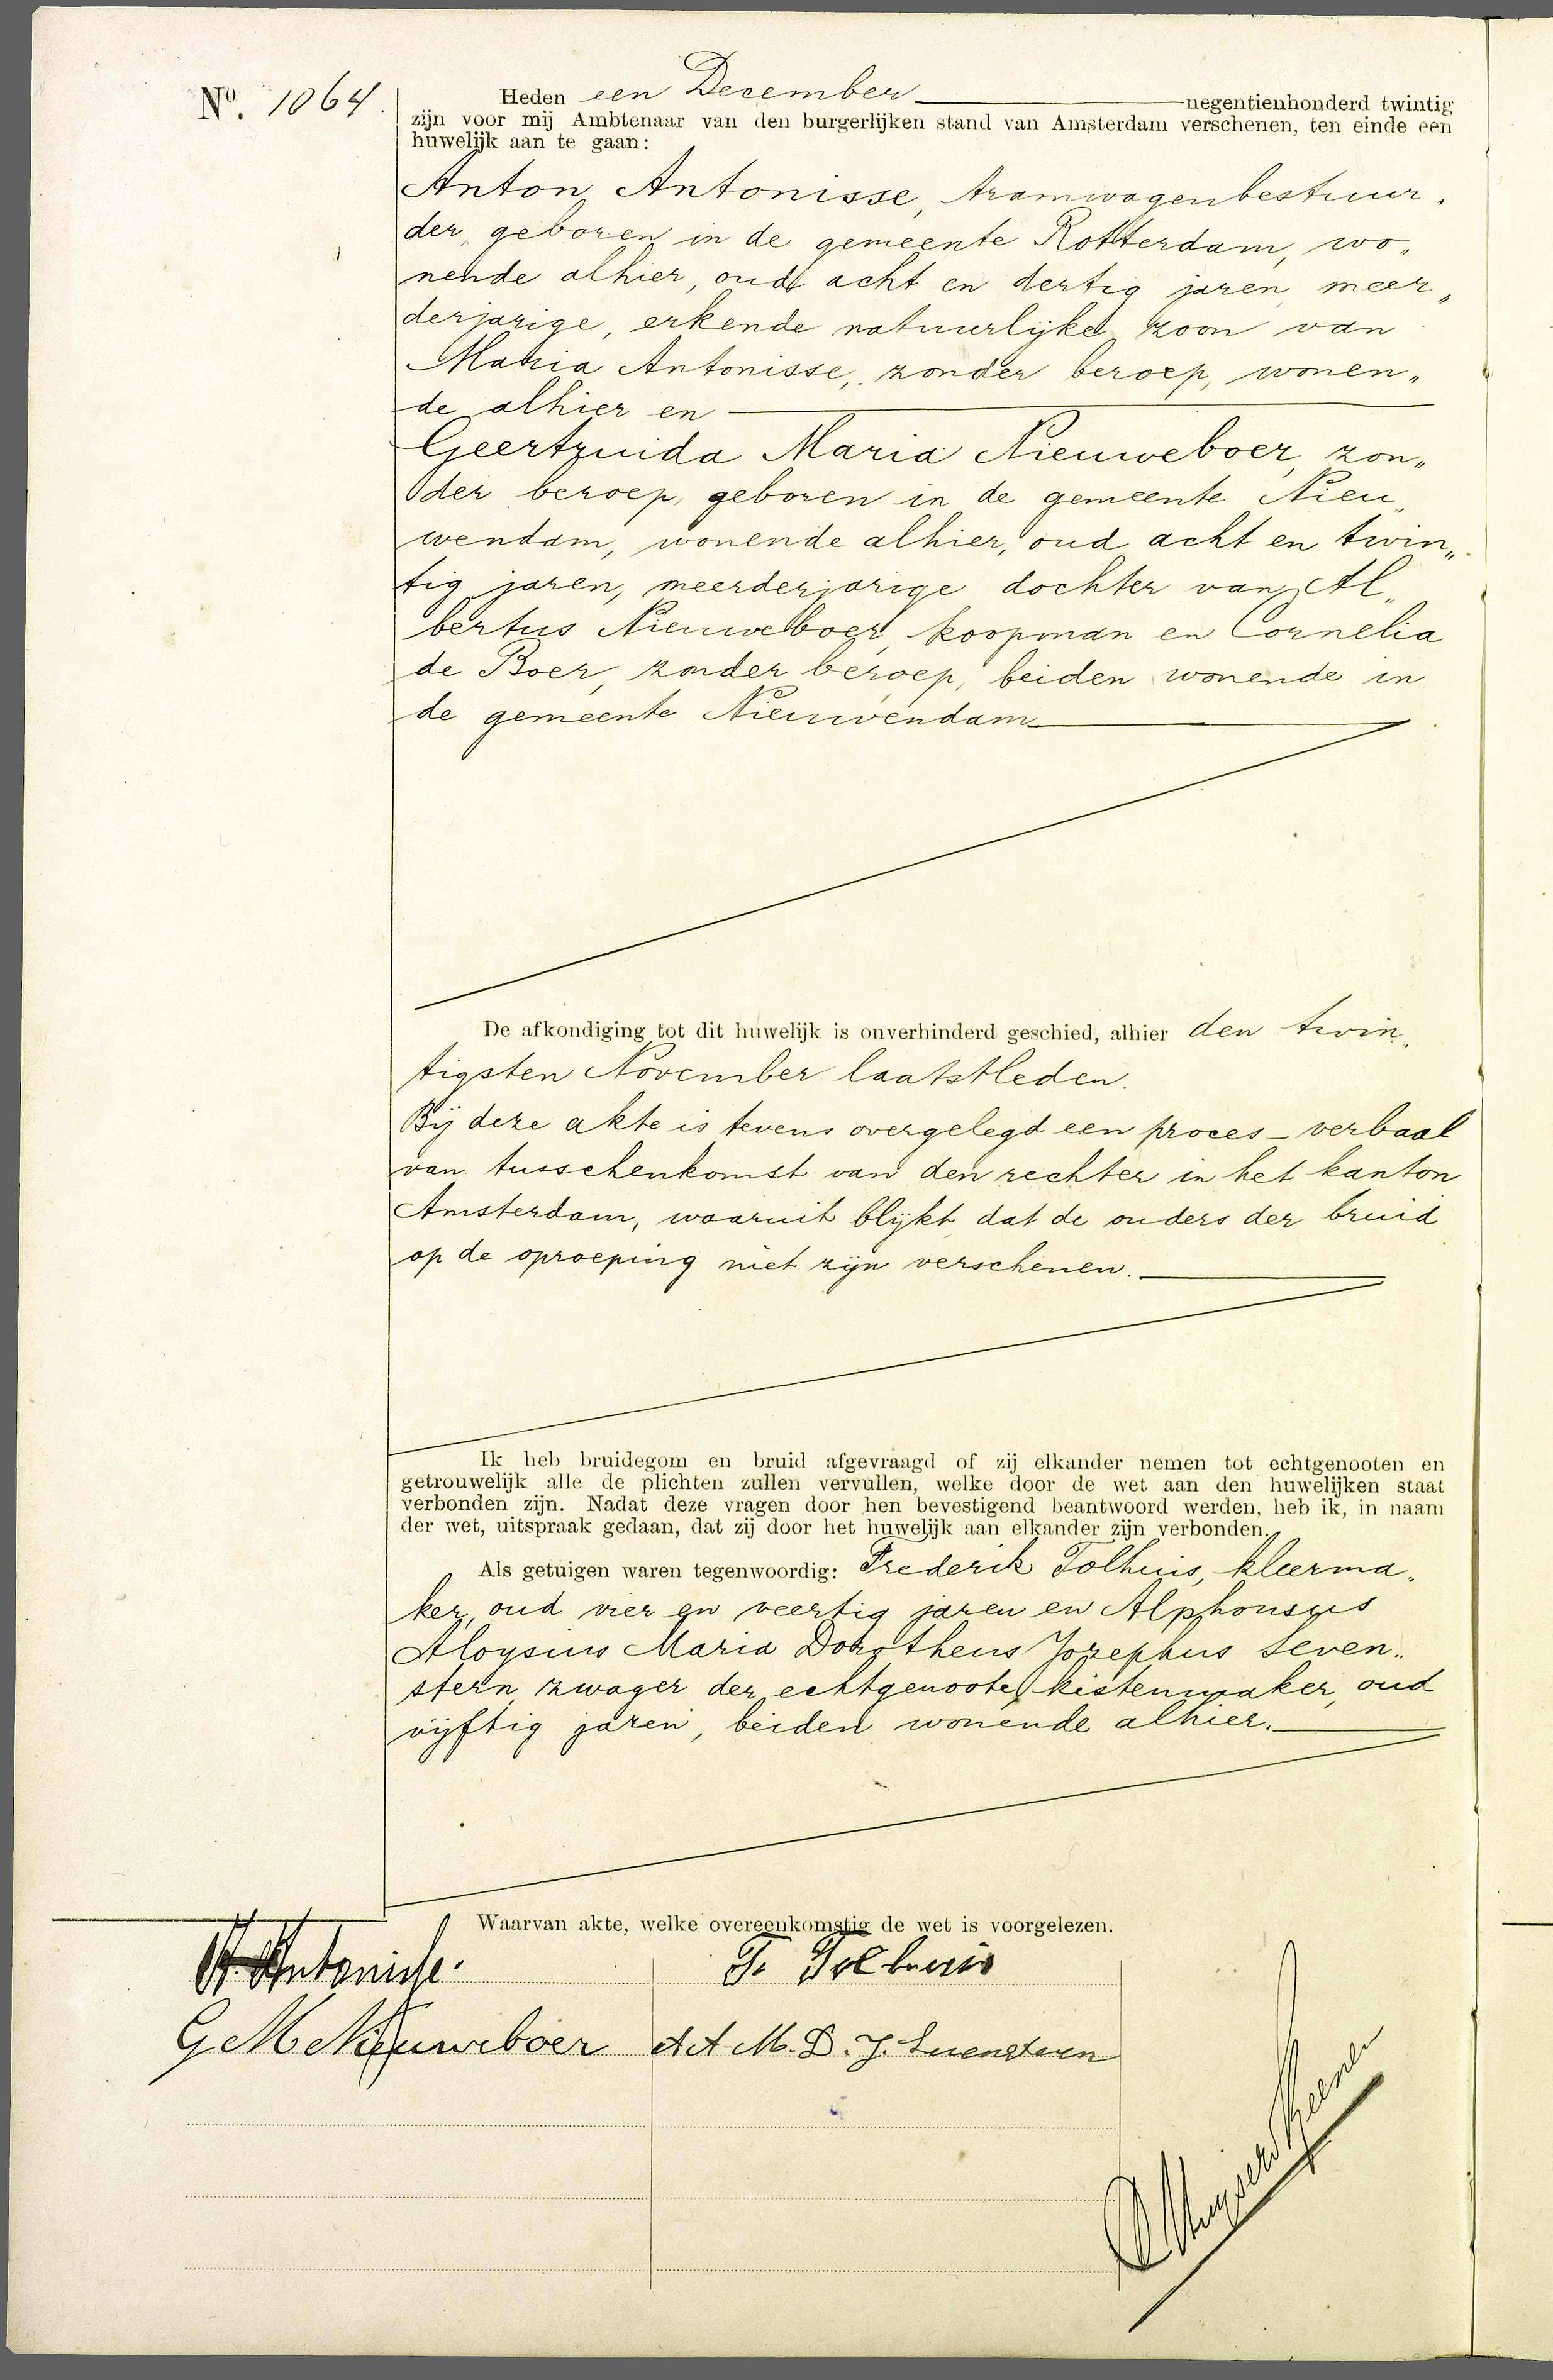 No. 1064
Heden een December negentienhonderd twintig
zijn voor mij Ambtenaar van den burgerlijken stand van Amsterdam verschenen, ten einde een
huwelijk aan te gaan:
Anton Antonisse, tramwagenbestuur„
der, geboren in de gemeente Rotterdam, wo„
nende alhier, oud acht en dertig jaren, meer„
derjarige, erkende natuurlijke zoon van
Maria Antonisse, zonder beroep, wonen„
de alhier en
Geertruida Maria Nieuweboer, zon„
der beroep, geboren in de gemeente Nieu„
wendam, wonende alhier, oud acht en twin„
tig jaren, meerderjarige dochter van Al„
bertus Nieuweboer, koopman en Cornelia
de Boer, zonder beroep, beiden wonende in
de gemeente Nieuwendam
De afkondiging tot dit huwelijk is onverhinderd geschied, alhier den twin„
tigsten November laatstleden.
Bij deze akte is tevens overgelegd een proces-verbaal
van tusschenkomst van den rechter in het kanton
Amsterdam, waaruit blijkt dat de ouders der bruid
op de oproeping niet zijn verschenen.
Ik heb bruidegom en bruid afgevraagd of zij elkander nemen tot echtgenooten en
getrouwelijk alle de plichten zullen vervullen, welke door de wet aan den huwelijken staat
verbonden zijn. Nadat deze vragen door hen bevestigend beantwoord werden, heb ik, in naam
der wet, uitspraak gedaan, dat zij door het huwelijk aan elkander zijn verbonden.
Als getuigen waren tegenwoordig: Frederik Tolhuis, kleerma„
ker, oud vier en veertig jaren en Alphonsus
Aloysius Maria Dorotheus Jozephus Seven„
stern, zwager der echtgenoote, kistenmaker, oud
vijftig jaren, beiden wonende alhier.
Waarvan akte, welke overeenkomstig de wet is voorgelezen.
A. Antonisse.
F. Tolhuis
G M Nieuweboer
A A. M. D. J. Sevenstern